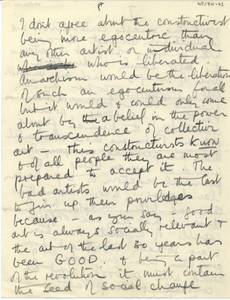 8
I don't agree about the constructivist
being more egocentric than
any other artist or individual
who is liberated.
anarchism would be the liberation
of such an egocentrism for all
but it would & could only come
about by a belief in the power
& transcendence of collective
art — this constructivists know
& of all people they are most
prepared to accept it. The
bad artists would be the last
to give up their privileges
because — as you say — good
art is always socially relevant &
the art of the last 80 years has
been GOOD. & being a part
of the revolution it must contain
the seed of social change